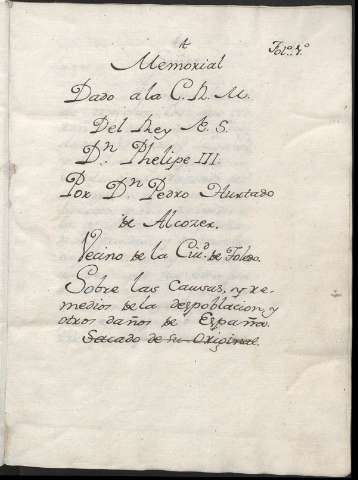 Fol.º 1.º
Memorial
Dado a la C. R. M.
Del Rey N. S.
D.n Phelipe III.
Por D.n Pedro Hurtado
de Alcozer.
Vecino de la Ciu.d de Toledo.
Sobre las causas, y re-
medios de la despoblacion, y
otros daños de España.
Sacado de su Original.